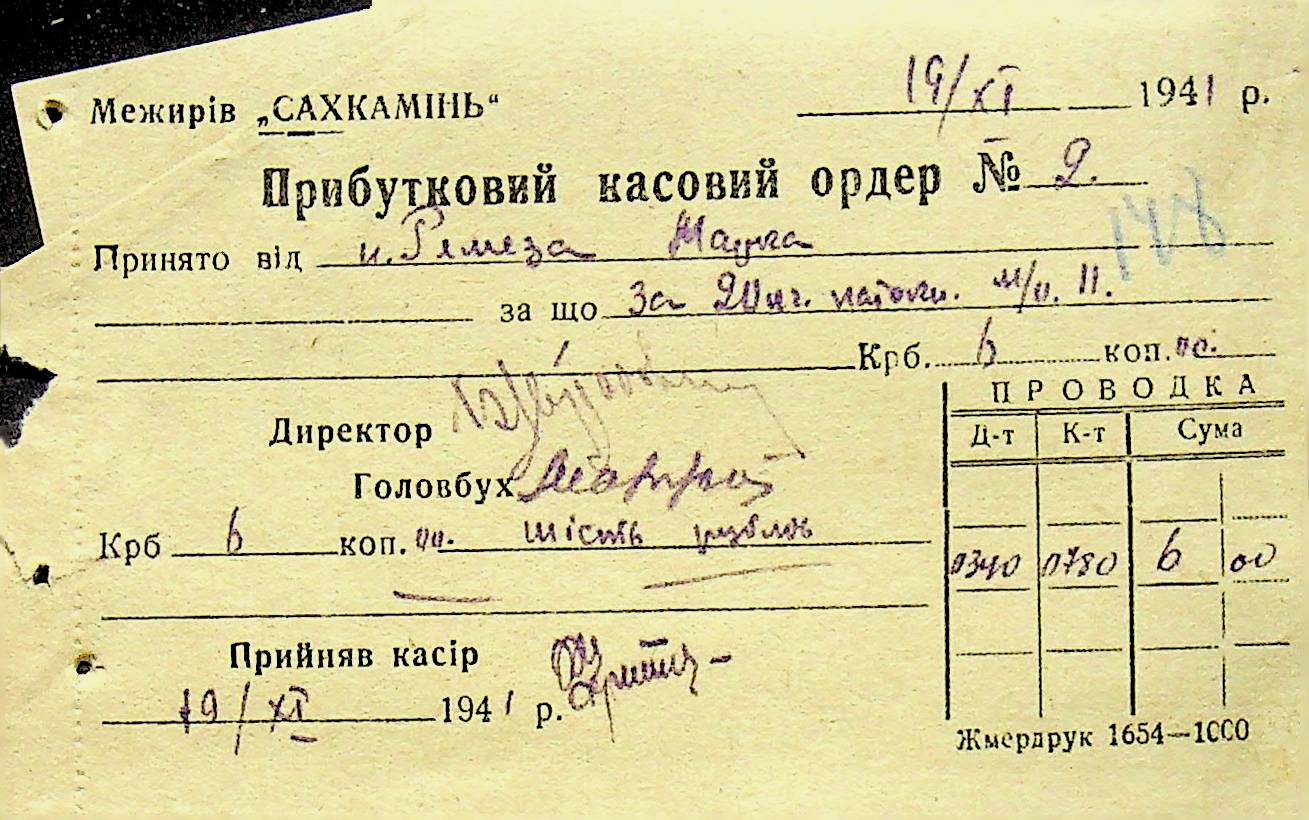 Межирів „САХКАМІНЬ“
19/XI 1941 р.
Прибутковий касовий ордер № 2.
148
Принято від
за що За
Крб. 6 коп. 00.
Директор
Головбух
Крб 6 коп. 00. шість рублів
Прийняв касір
19/XI 1941 р.
ПРОВОДКА
Д-т К-т Сума
0340 0780 6 00
Жмердрук 1654—1000